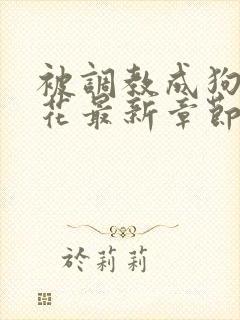 被調教成狗
花最新章節
於莉莉